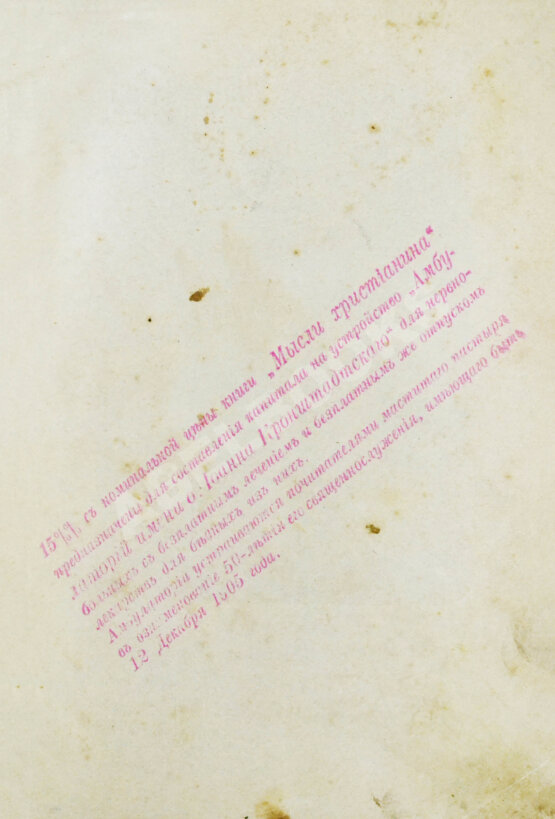 15%% съ номинальной цѣны книги „Мысли христіанина“
предназначены для составленія капитала на устройство „Амбу-
латорій имени о. Іоанна Кронштадтскаго“ для нервно-
больныхъ съ безплатнымъ леченіемъ и безплатнымъ же отпускомъ
лекарствъ для бѣдныхъ изъ нихъ.
Амбулаторіи устраиваются почитателями маститаго пастыря
въ ознаменованіе 50-лѣтія его священнослуженія, имѣющаго быть
12 Декабря 1905 года.